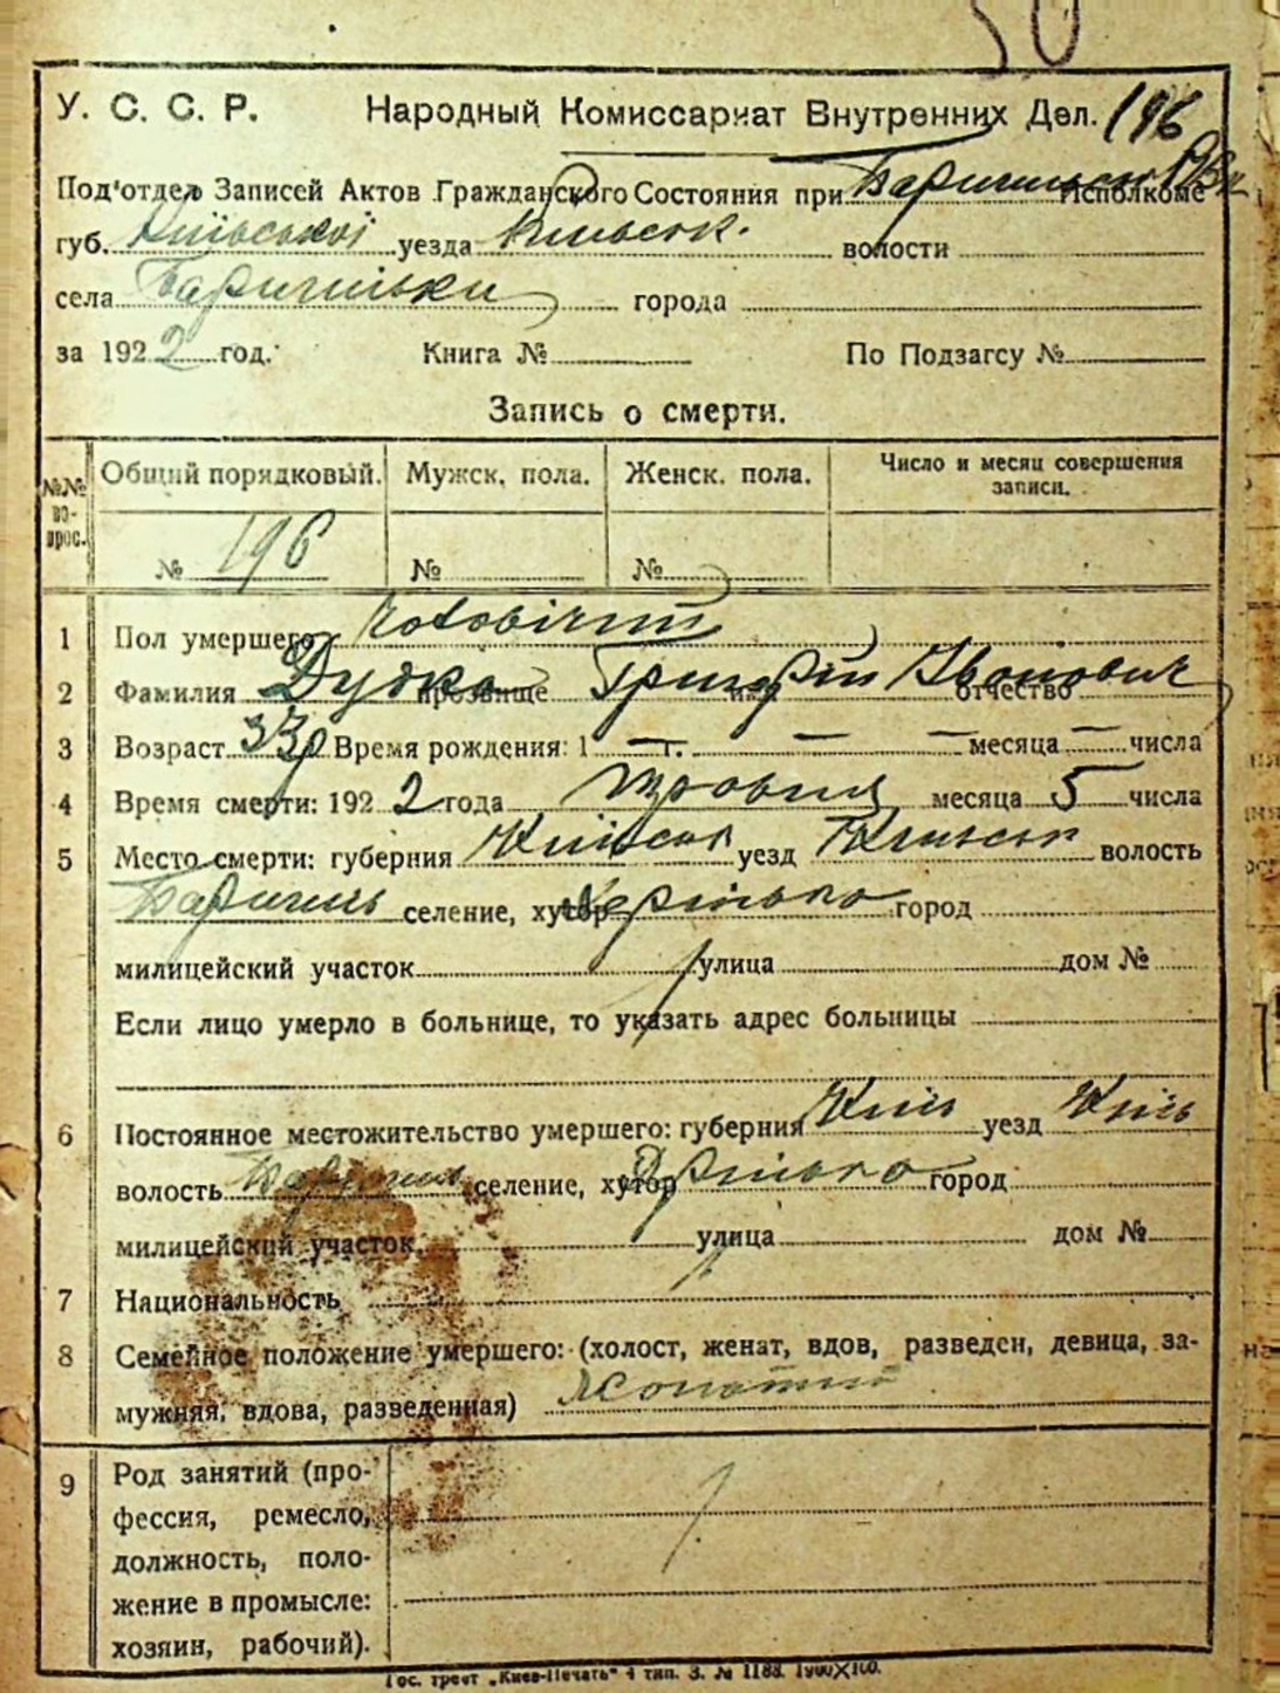 50
У. С. С. Р. Народный Комиссариат Внутренних Дел. 196
Под'отдел Записей Актов Гражданского Состояния при Исполкоме
губ. Київської уезда Київськ. волости
села города
за 1922 год. Книга № По Подзагсу №
Запись о смерти.
№№ во-прос. Общий порядковый. Мужск. пола. Женск. пола. Число и месяц совершения записи.
№ 196 № №
1 Пол умершего чоловічий
2 Фамилия Дудка прозвище Григорій имя Іванович отчество
3 Возраст 33 р Время рождения: 1 — г. — — месяца — числа
4 Время смерти: 1922 года травня месяца 5 числа
5 Место смерти: губерния Київськ уезд Київськ волость
селение, хутор город
милицейский участок улица дом №
Если лицо умерло в больнице, то указать адрес больницы
6 Постоянное местожительство умершего: губерния Київ уезд Київ
волость селение, хутор город
милицейский участок. улица дом №
7 Национальность
8 Семейное положение умершего: (холост, женат, вдов, разведен, девица, за-
мужняя, вдова, разведенная) жонатий
9 Род занятий (про-
фессия, ремесло,
должность, поло-
жение в промысле:
хозяин, рабочий).
Гос. трест „Киев-Печать" 4 тип. З. № 1188. 1900×100.